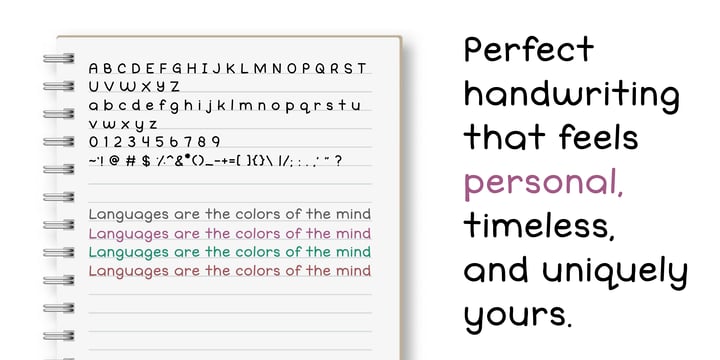 A B C D E F G H I J K L M N O P Q R S T
U V W X Y Z
a b c d e f g h i j k l m n o p q r s t u
v w x y z
0 1 2 3 4 5 6 7 8 9
~'! @ # $ ⁒^&*()_-+=[ ]{}\ |/; : . ,' " ?
Languages are the colors of the mind
Languages are the colors of the mind
Languages are the colors of the mind
Languages are the colors of the mind
Perfect
handwriting
that feels
personal,
timeless,
and uniquely
yours.